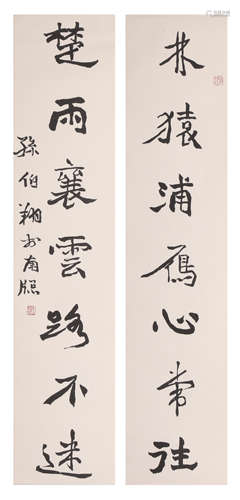 林猿浦雁心常往
楚雨襄雲路不迷
孫伯翔於南牖